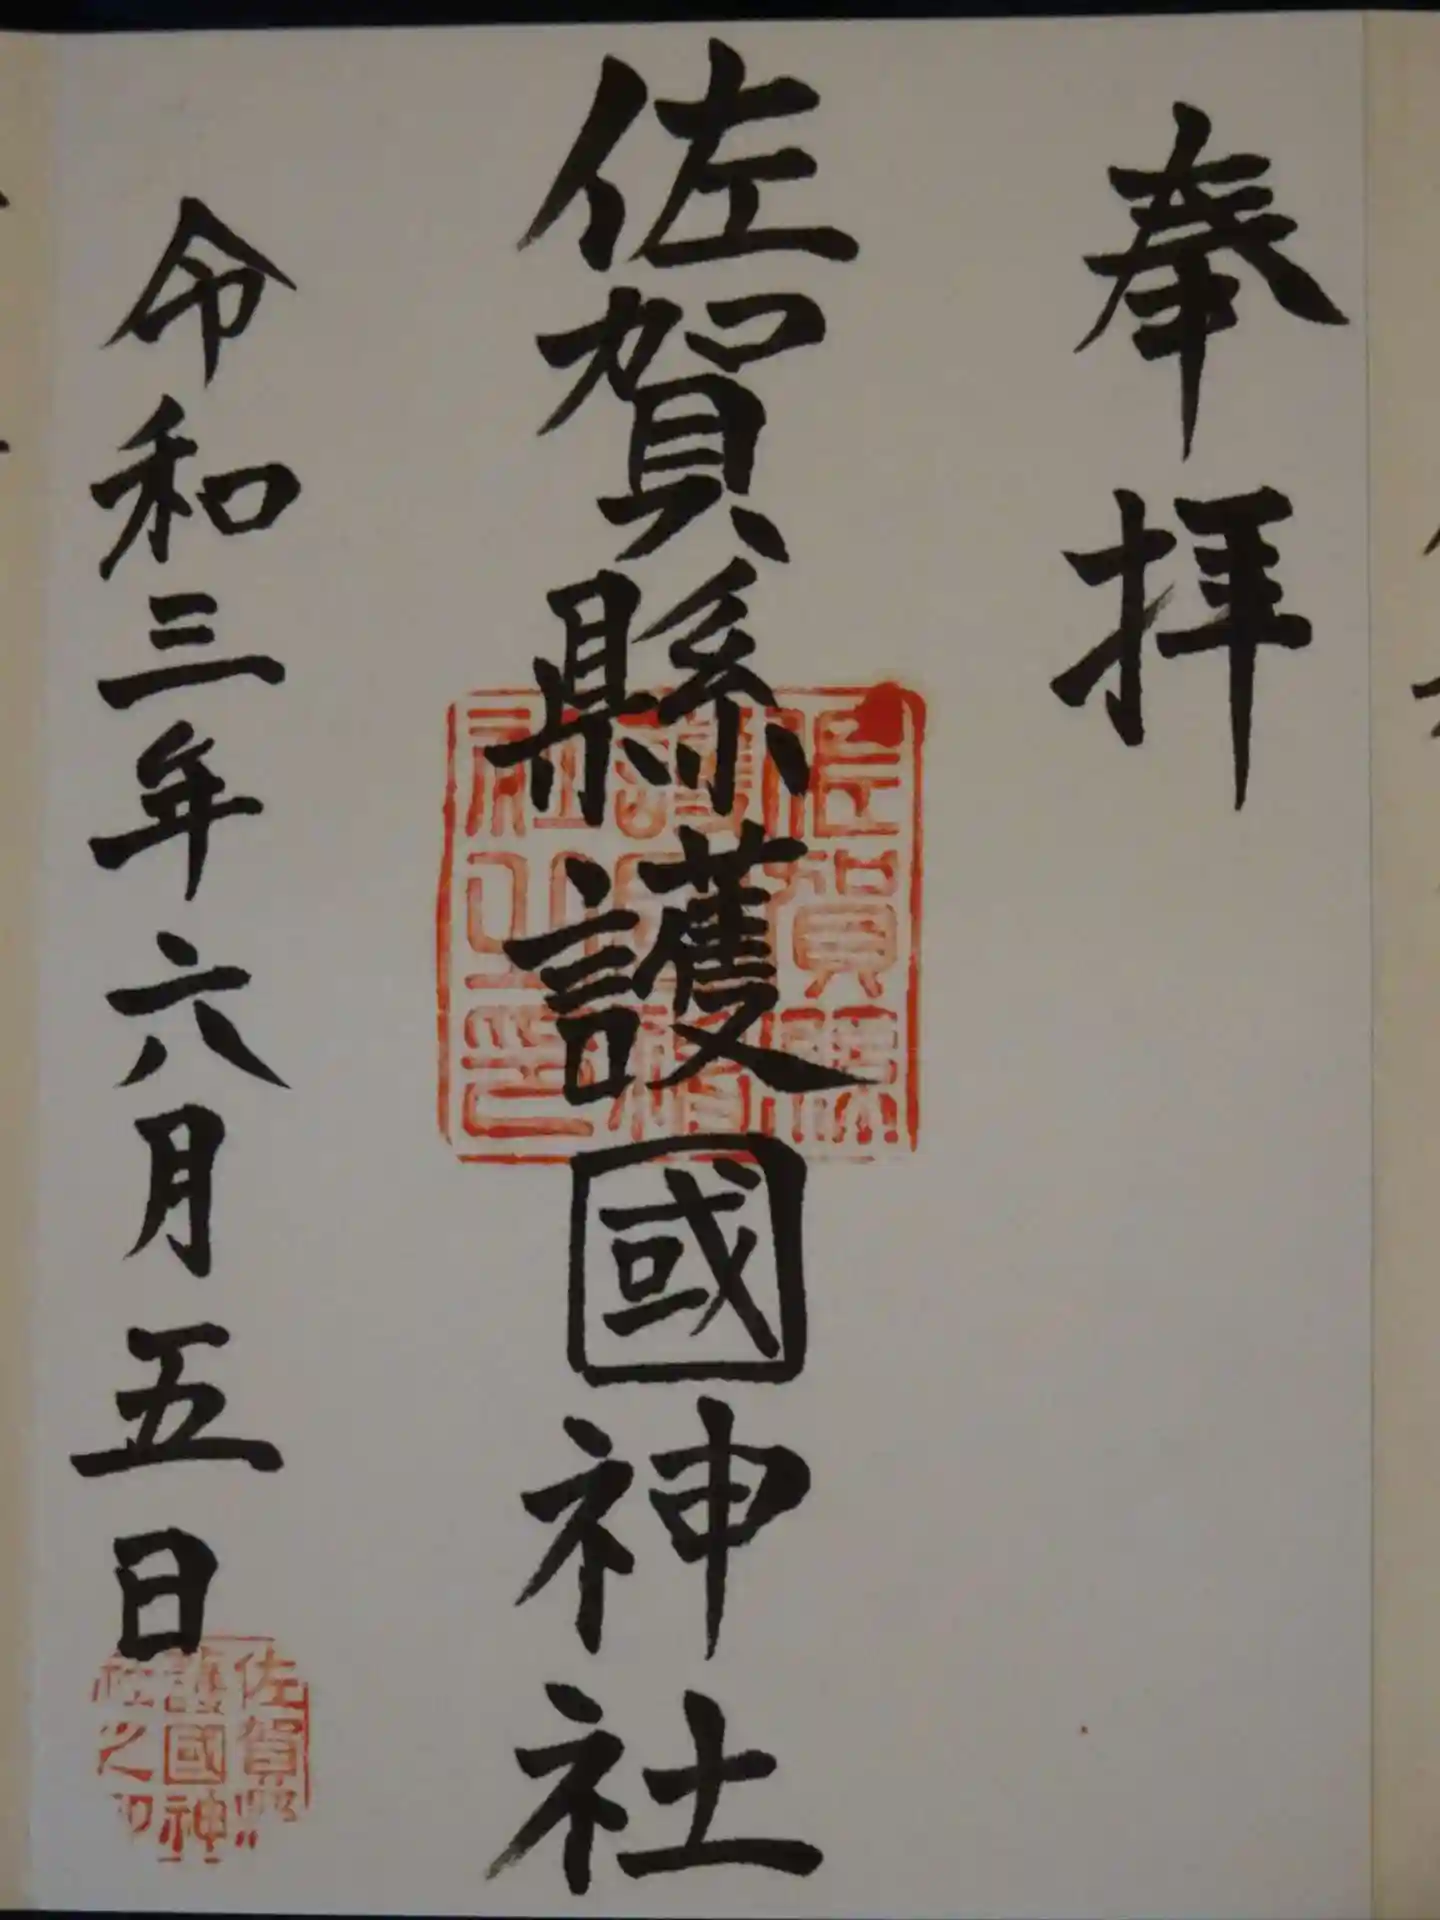 奉拝
佐賀縣護國神社
佐賀縣護國神社之印
令和三年六月五日
佐賀縣護國神社之印